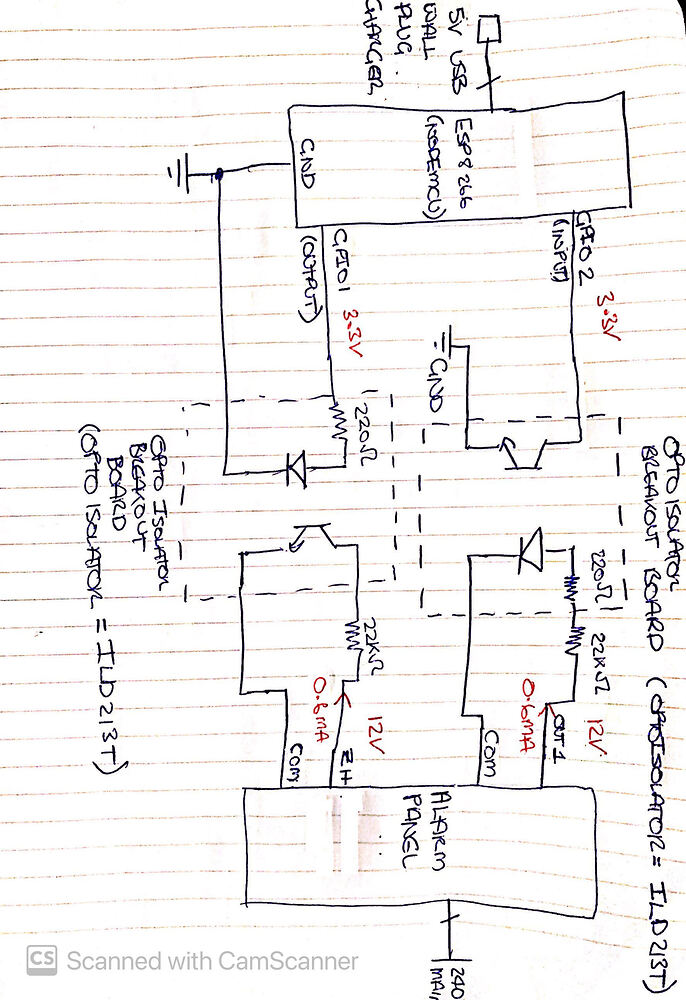 OPTO ISOLATOR
BREAKOUT BOARD (OPTOISOLATOR = ILD213T)
3.3V
GPIO 2
(INPUT)
220Ω
22KΩ
12V
OUT 1
0.6mA
COM
GND
5V USB
WALL
PLUG
CHARGER
ESP8266
(NODEMCU)
GND
GPIO1
(OUTPUT)
3.3V
220Ω
22KΩ
12V
0.6mA
ZH
COM
ALARM
PANEL
240
OPTO ISOLATOR
BREAKOUT
BOARD
(OPTO ISOLATOR = ILD213T)
CS Scanned with CamScanner